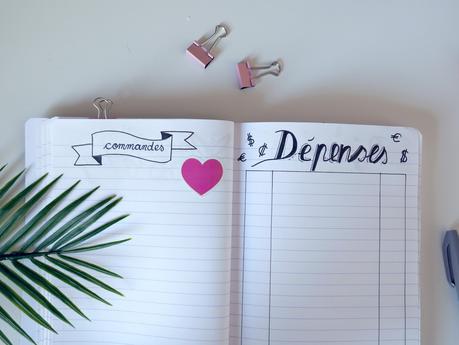 commandes
$ ¢ € Dépenses € $